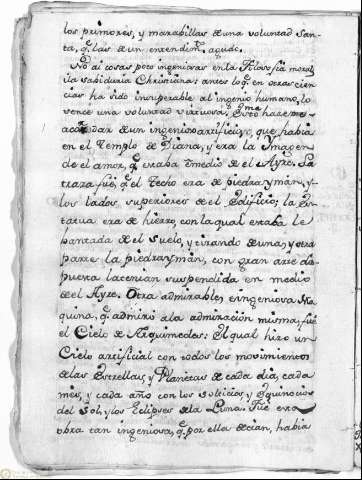 los primores, y marabillas de una voluntad san-
ta, q.e las de un entendim.to agudo.
No ai cosas pero ingeniosas en la Filosofia moral,
la Sabiduria Christiana: antes lo q.e en otras cien-
cias ha sido insuperable al ingenio humano, lo
vence una voluntad virtuosa. Esto hace me
acordar de un ingenioso artificio, que habia
en el Templo de Diana, y era la Imagen
de el amor, q.e estaba enmedio de el Ayre. La
traza fue, q.e el techo era de piedra ymán, y
los lados superiores de el Edificio; la Es-
tatua era de hierro, con la qual estaba le
bantada de el Suelo, y tirando de una, y otra
parte la piedra ymán, con gran arte dis-
puesta la tenian suspendida en medio
de el Ayre. Otra admirable, e ingeniosa Ma
quina, q.e admiró a la admiración misma, fué
el Cielo de Arquimedes: El qual hizo un
Cielo artificial con todos los movimientos
de las Estrellas, y Planetas de cada dia, cada
mes, y cada año con los solticios, y Equinocios
del Sol, y los Eclipses de la Luna. Fué esta
obra tan ingeniosa, q.e por ella decian, habia